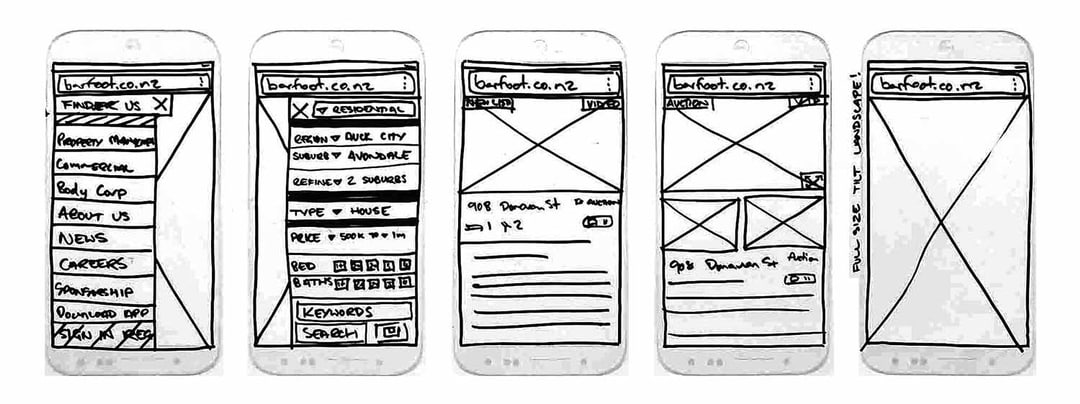 barfoot.co.nz
US
PROPERTY
COMMERCIAL
Body Corp
ABOUT US
NEWS
CAREERS
SPONSORSHIP
DOWNLOAD APP
SIGN IN REG
barfoot.co.nz
RESIDENTIAL
REGION AUCK CITY
SUBURB AVONDALE
REFINE 2 SUBURBS
TYPE HOUSE
PRICE 500K TO 1m
BED
BATHS
KEYWORDS
SEARCH
barfoot.co.nz
NEW LIST VIDEO
908 Donovan St AUCTION
1 2
barfoot.co.nz
AUCTION VID
908 Donovan St Auction
barfoot.co.nz
FULL SIZE TILT LANDSCAPE!